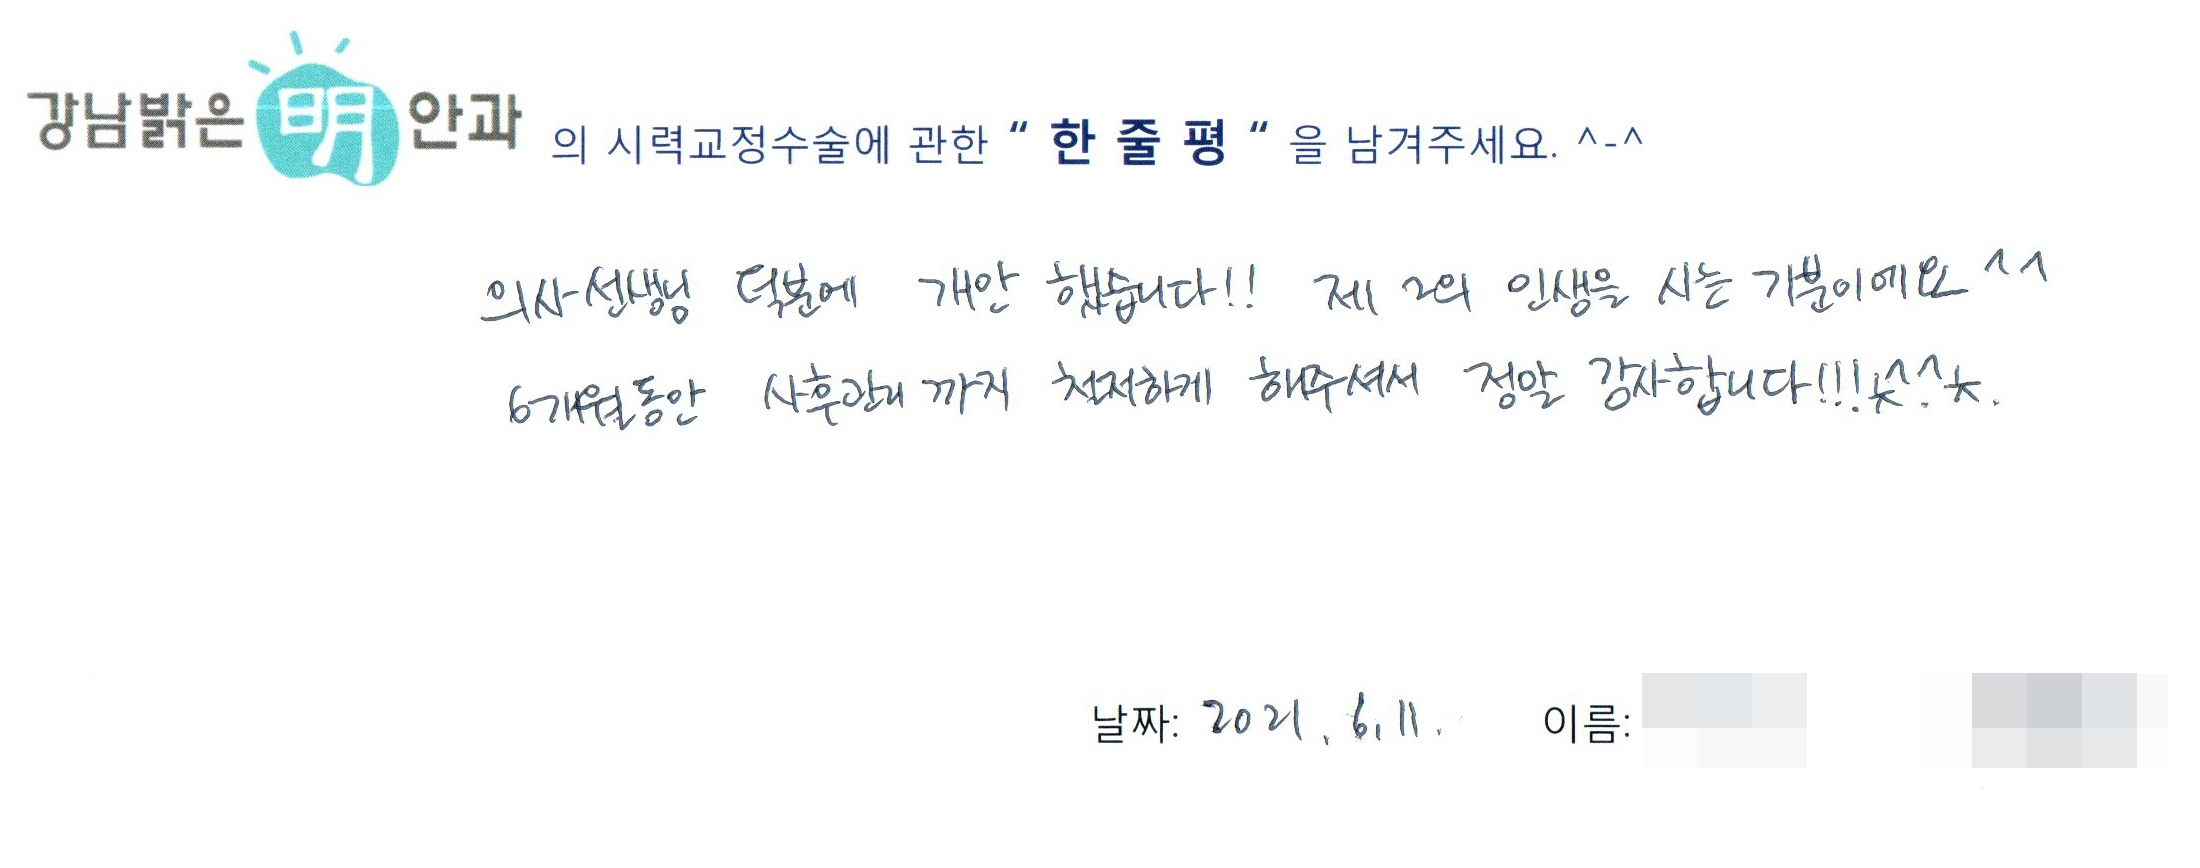 강남밝은 明 안과 의 시력교정수술에 관한 “ 한 줄 평 “ 을 남겨주세요. ^-^
의사선생님 덕분에 개안 했습니다!! 제 2의 인생을 사는 기분이에요 ^^
6개월동안 사후관리 까지 철저하게 해주셔서 정말 감사합니다!!! ㅊ^.^ㅊ.
날짜: 2021. 6. 11. 이름: